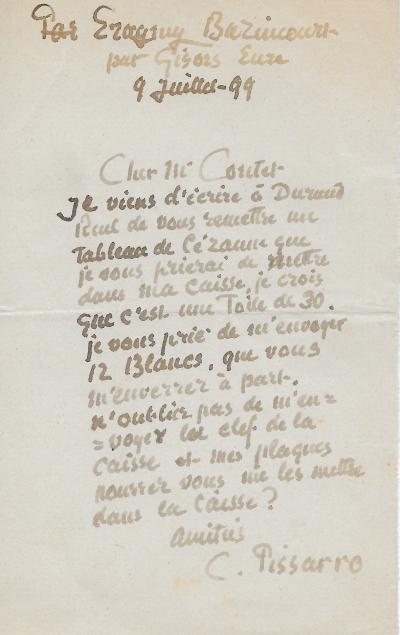 Par Eragny Bazincourt
par Gisors Eure
9 Juillet-99
Cher Mr Contet
Je viens d'écrire à Durand
Ruel de vous remettre un
Tableau de Cézanne que
je vous prierai de mettre
dans ma caisse, je crois
que c'est une Toile de 30.
je vous prie de m'envoyer
12 Blancs, que vous
m'enverrez à part.
n'oublier pas de m'en=
=voyer la clef de la
caisse et mes plaques
pourrez vous me les mettre
dans la caisse?
amitiés
C. Pissarro